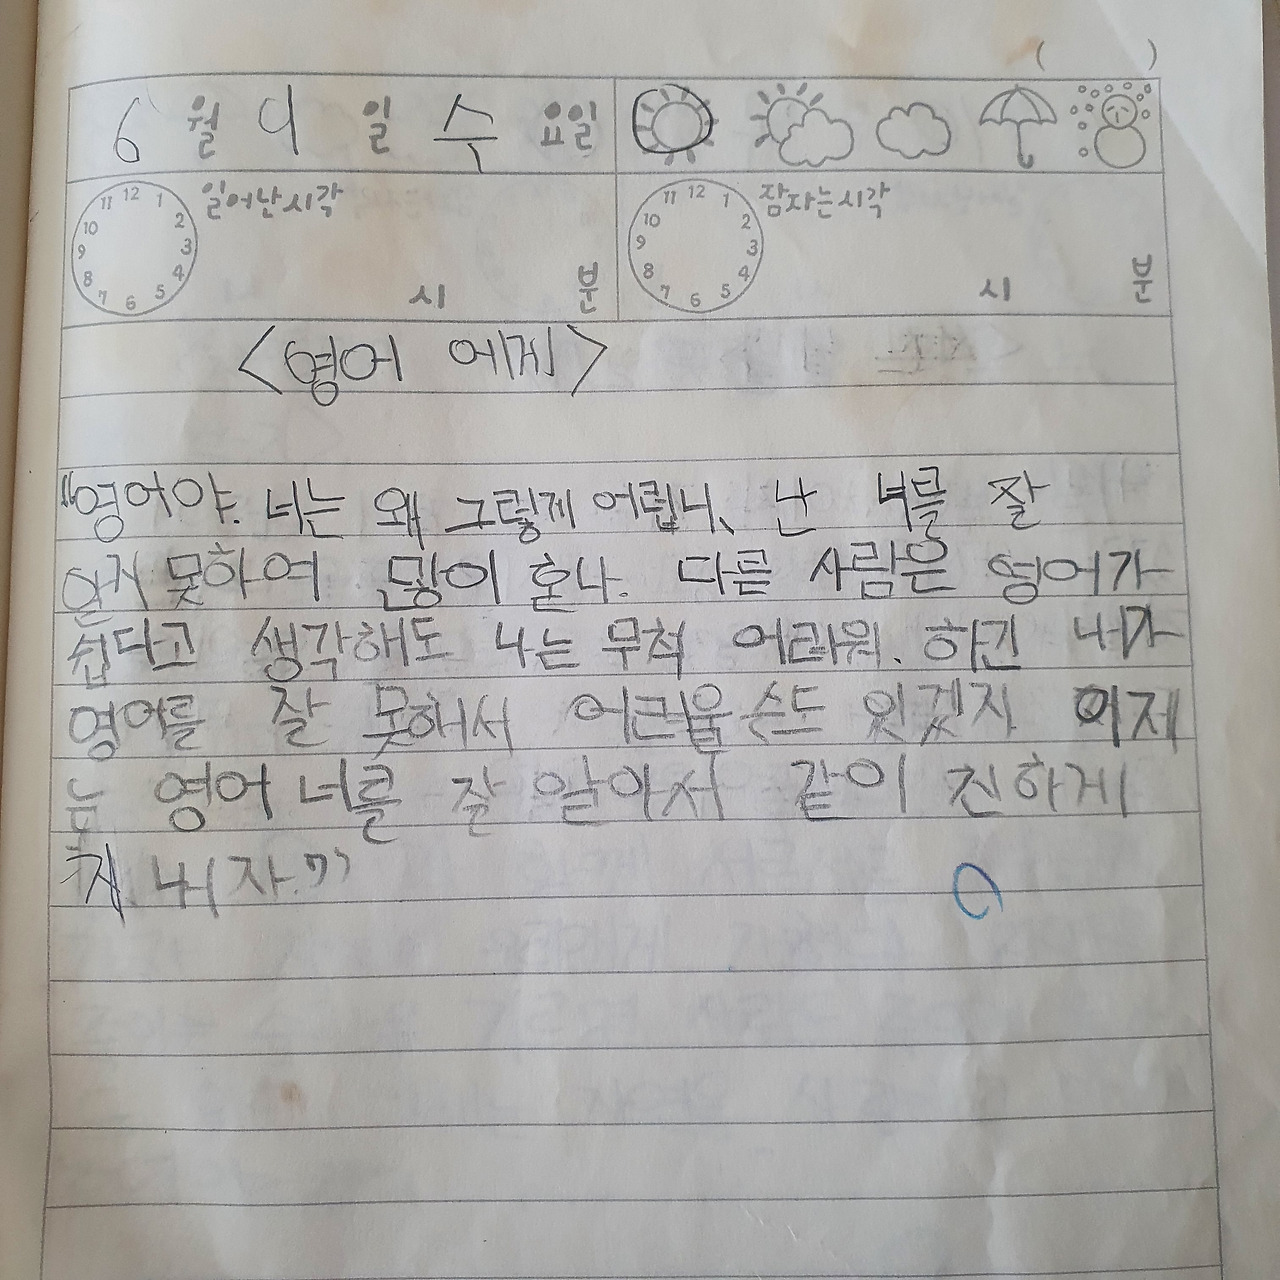 ( )
6 월 9 일 수 요일
12 1 2 3 4 5 6 7 8 9 10 11 일어난시각 시 분
12 1 2 3 4 5 6 7 8 9 10 11 잠자는시각 시 분
<영어 에게>
"영어야. 너는 왜 그렇게 어렵니, 난 너를 잘
알지 못하여 많이 혼나. 다른 사람은 영어가
쉽다고 생각해도 나는 무척 어려워. 하긴 내가
영어를 잘 못해서 어려울 수도 있겠지 이제
는 영어 너를 잘 알아서 같이 친하게
지내자."